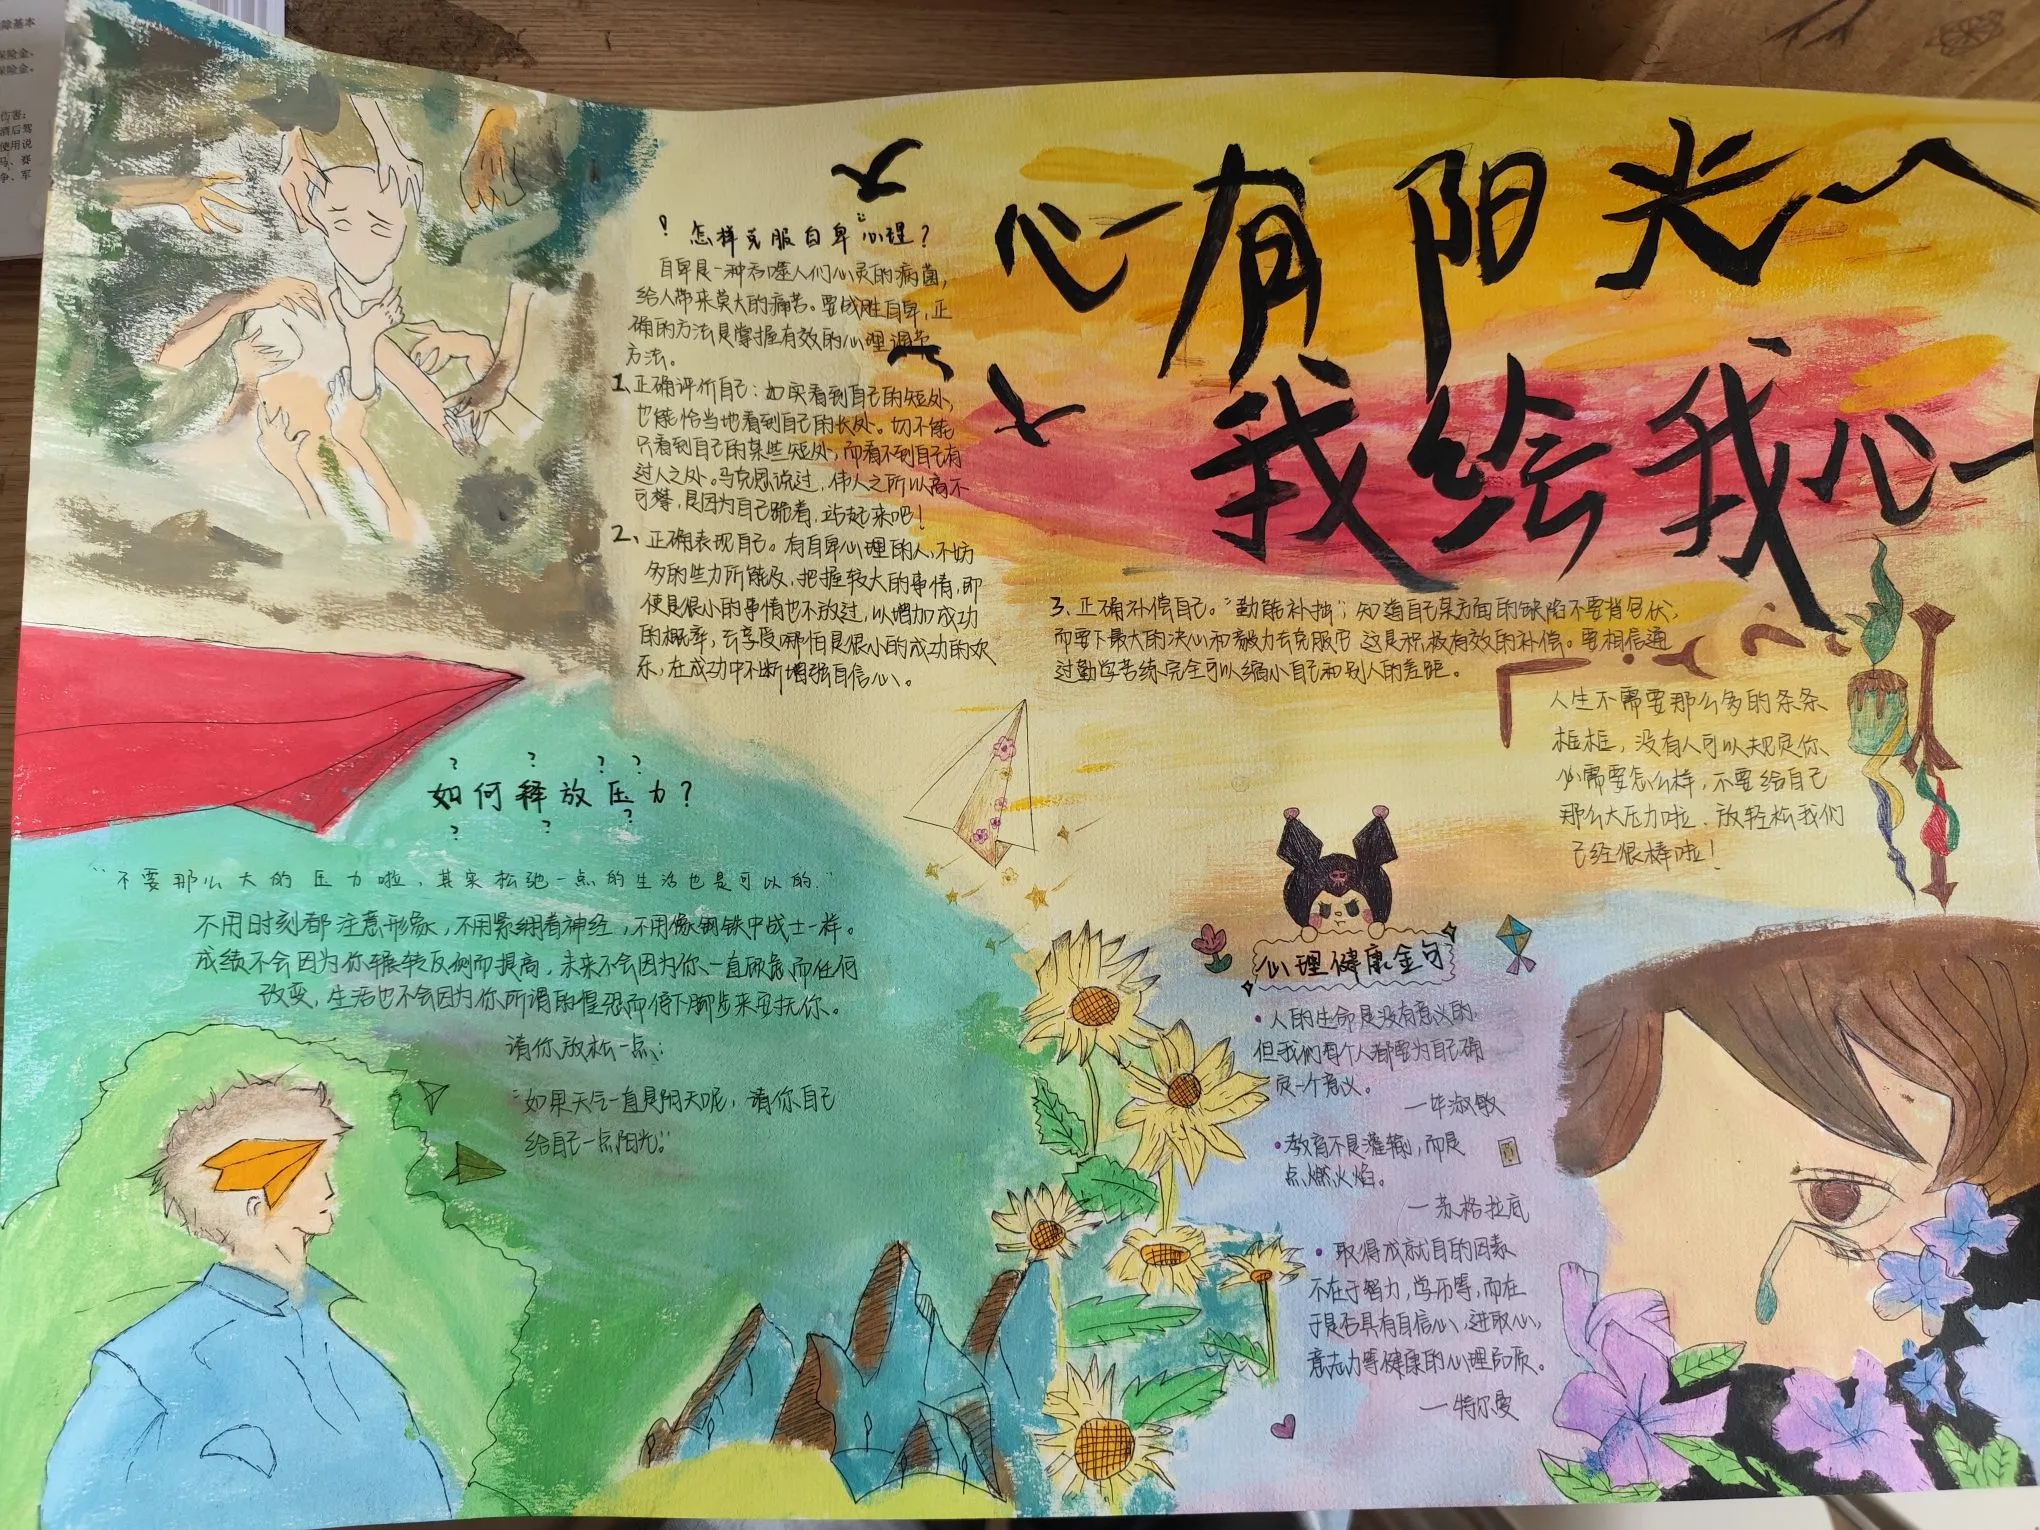 心有阳光
我绘我心
怎样克服自卑“心理？
自卑是一种吞噬人们心灵的病菌，
给人带来莫大的痛苦。要战胜自卑，正
确的方法是掌握有效的心理调节
方法。
1、正确评价自己：如实看到自己的短处，
也能恰当地看到自己的长处。切不能
只看到自己的某些短处，而看不到自己有
过人之处。马克思说过，伟人之所以高不
可攀，是因为自己跪着，站起来吧！
2、正确表现自己。有自卑心理的人，不妨
多的些力所能及，把握较大的事情，即
使是很小的事情也不放过，以增加成功
的概率，去享受哪怕是很小的成功的欢
乐，在成功中不断增强自信心。
3、正确补偿自己。“勤能补拙”，知道自己某方面的缺陷不要背包伏，
而要下最大的决心和毅力去克服它 这是积极有效的补偿。要相信通
过勤学苦练完全可以缩小自己和别人的差距。
人生不需要那么多的条条
框框，没有人可以规定你
必需要怎么样，不要给自己
那么大压力啦，放轻松我们
已经很棒啦！
? ? ? ?
如何释放压力？
? ? ?
“不要那么大的压力啦，其实松弛一点的生活也是可以的.”
不用时刻都注意形象，不用紧绷着神经，不用像钢铁中战士一样。
成绩不会因为你辗转反侧而提高，未来不会因为你一直顾虑而任何
改变，生活也不会因为你所谓的惶恐而停下脚步来安抚你。
请你放松一点：
“如果天气一直是阴天呢，请你自己
给自己一点阳光。”
心理健康金句
·人的生命是没有意义的，
但我们每个人都要为自己确
定一个意义。
—毕淑敏
·教育不是灌输，而是
点燃火焰。
—苏格拉底
·取得成就自的因素
不在于智力，学历等，而在
于是否具有自信心、进取心，
意志力等健康的心理品质。
—特尔曼
除基本
保险金。
保险金。
伤害；
酒后驾
使用说
马、赛
争、军